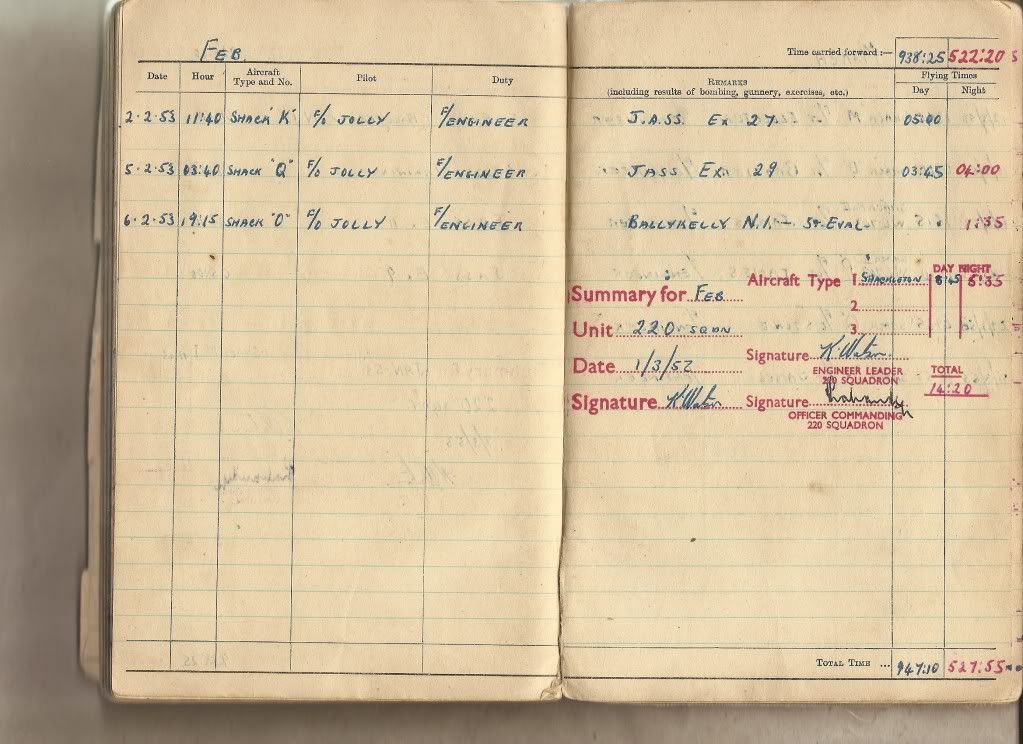 FEB.
Date Hour Aircraft Type and No. Pilot Duty
2·2·53 11:40 SHACK "K" F/O JOLLY F/ENGINEER
5·2·53 03:40 SHACK "Q" F/O JOLLY F/ENGINEER
6·2·53 19:15 SHACK "O" F/O JOLLY F/ENGINEER
Time carried forward :— 938:25 522:20
REMARKS Flying Times
(including results of bombing, gunnery, exercises, etc.) Day Night
J.A.S.S. Ex 27. 05:00
JASS Ex. 29 03:45 04:00
BALLYKELLY N.I. – ST EVAL– 1:35
DAY NIGHT
Summary for FEB Aircraft Type 1 SHACKLETON 8:45 5:35
2
Unit 220 SQDN 3
Date 1/3/52 Signature K Watson
ENGINEER LEADER TOTAL
220 SQUADRON 14:20
Signature K Watson Signature
OFFICER COMMANDING
220 SQUADRON
TOTAL TIME ... 947:10 527:55